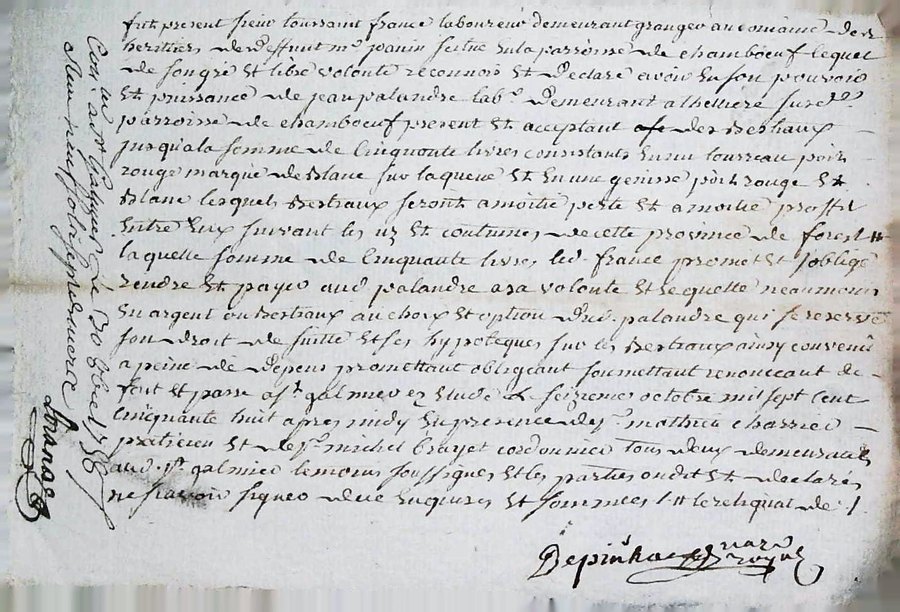 fut present sieur toussaint france laboureur demeurant granger au domaine des
heritiers de deffunt me janin en la parroisse de chambœuf lequel
de son gré et libre volonté reconnois et declare avoir en son pouvoir
et puissance de jean palandre labr. demeurant a sur lade.
parroisse de chambœuf present et acceptant des bestiaux
jusqua la somme de cinquante livres consistants en un taureau poil
rouge marqué de blanc sur la queue et en une genisse poil rouge et
blanc lesquels bestiaux seront a moitié perte et a moitié proffit
entre eux suivant les uz et coutumes de cette province de forest
laquelle somme de cinquante livres led. france promet et s'oblige
rendre et payer aud palandre a sa volonté et requette neanmoins
en argent ou bestiaux au choix et option dud. palandre qui se reserve
son droit de suitte et ses hypoteques sur les bestiaux ainsy convenu
a peine de depens promettant obligeant soumettant renoncant &c
fait et passé a st. galmier ez etude le seizieme octobre mil sept cent
cinquante huit apres midy en presence de sr. mathieu charrier
praticien et de sr. michel brayet cordonnier tous deux demeurants
aud. st. galmier temoins soussignes et les parties ont dit et declaré
ne scavoir signer de ce enquises et sommées
notaire
royal
Con. a st. galmier le 30 8bre 1758